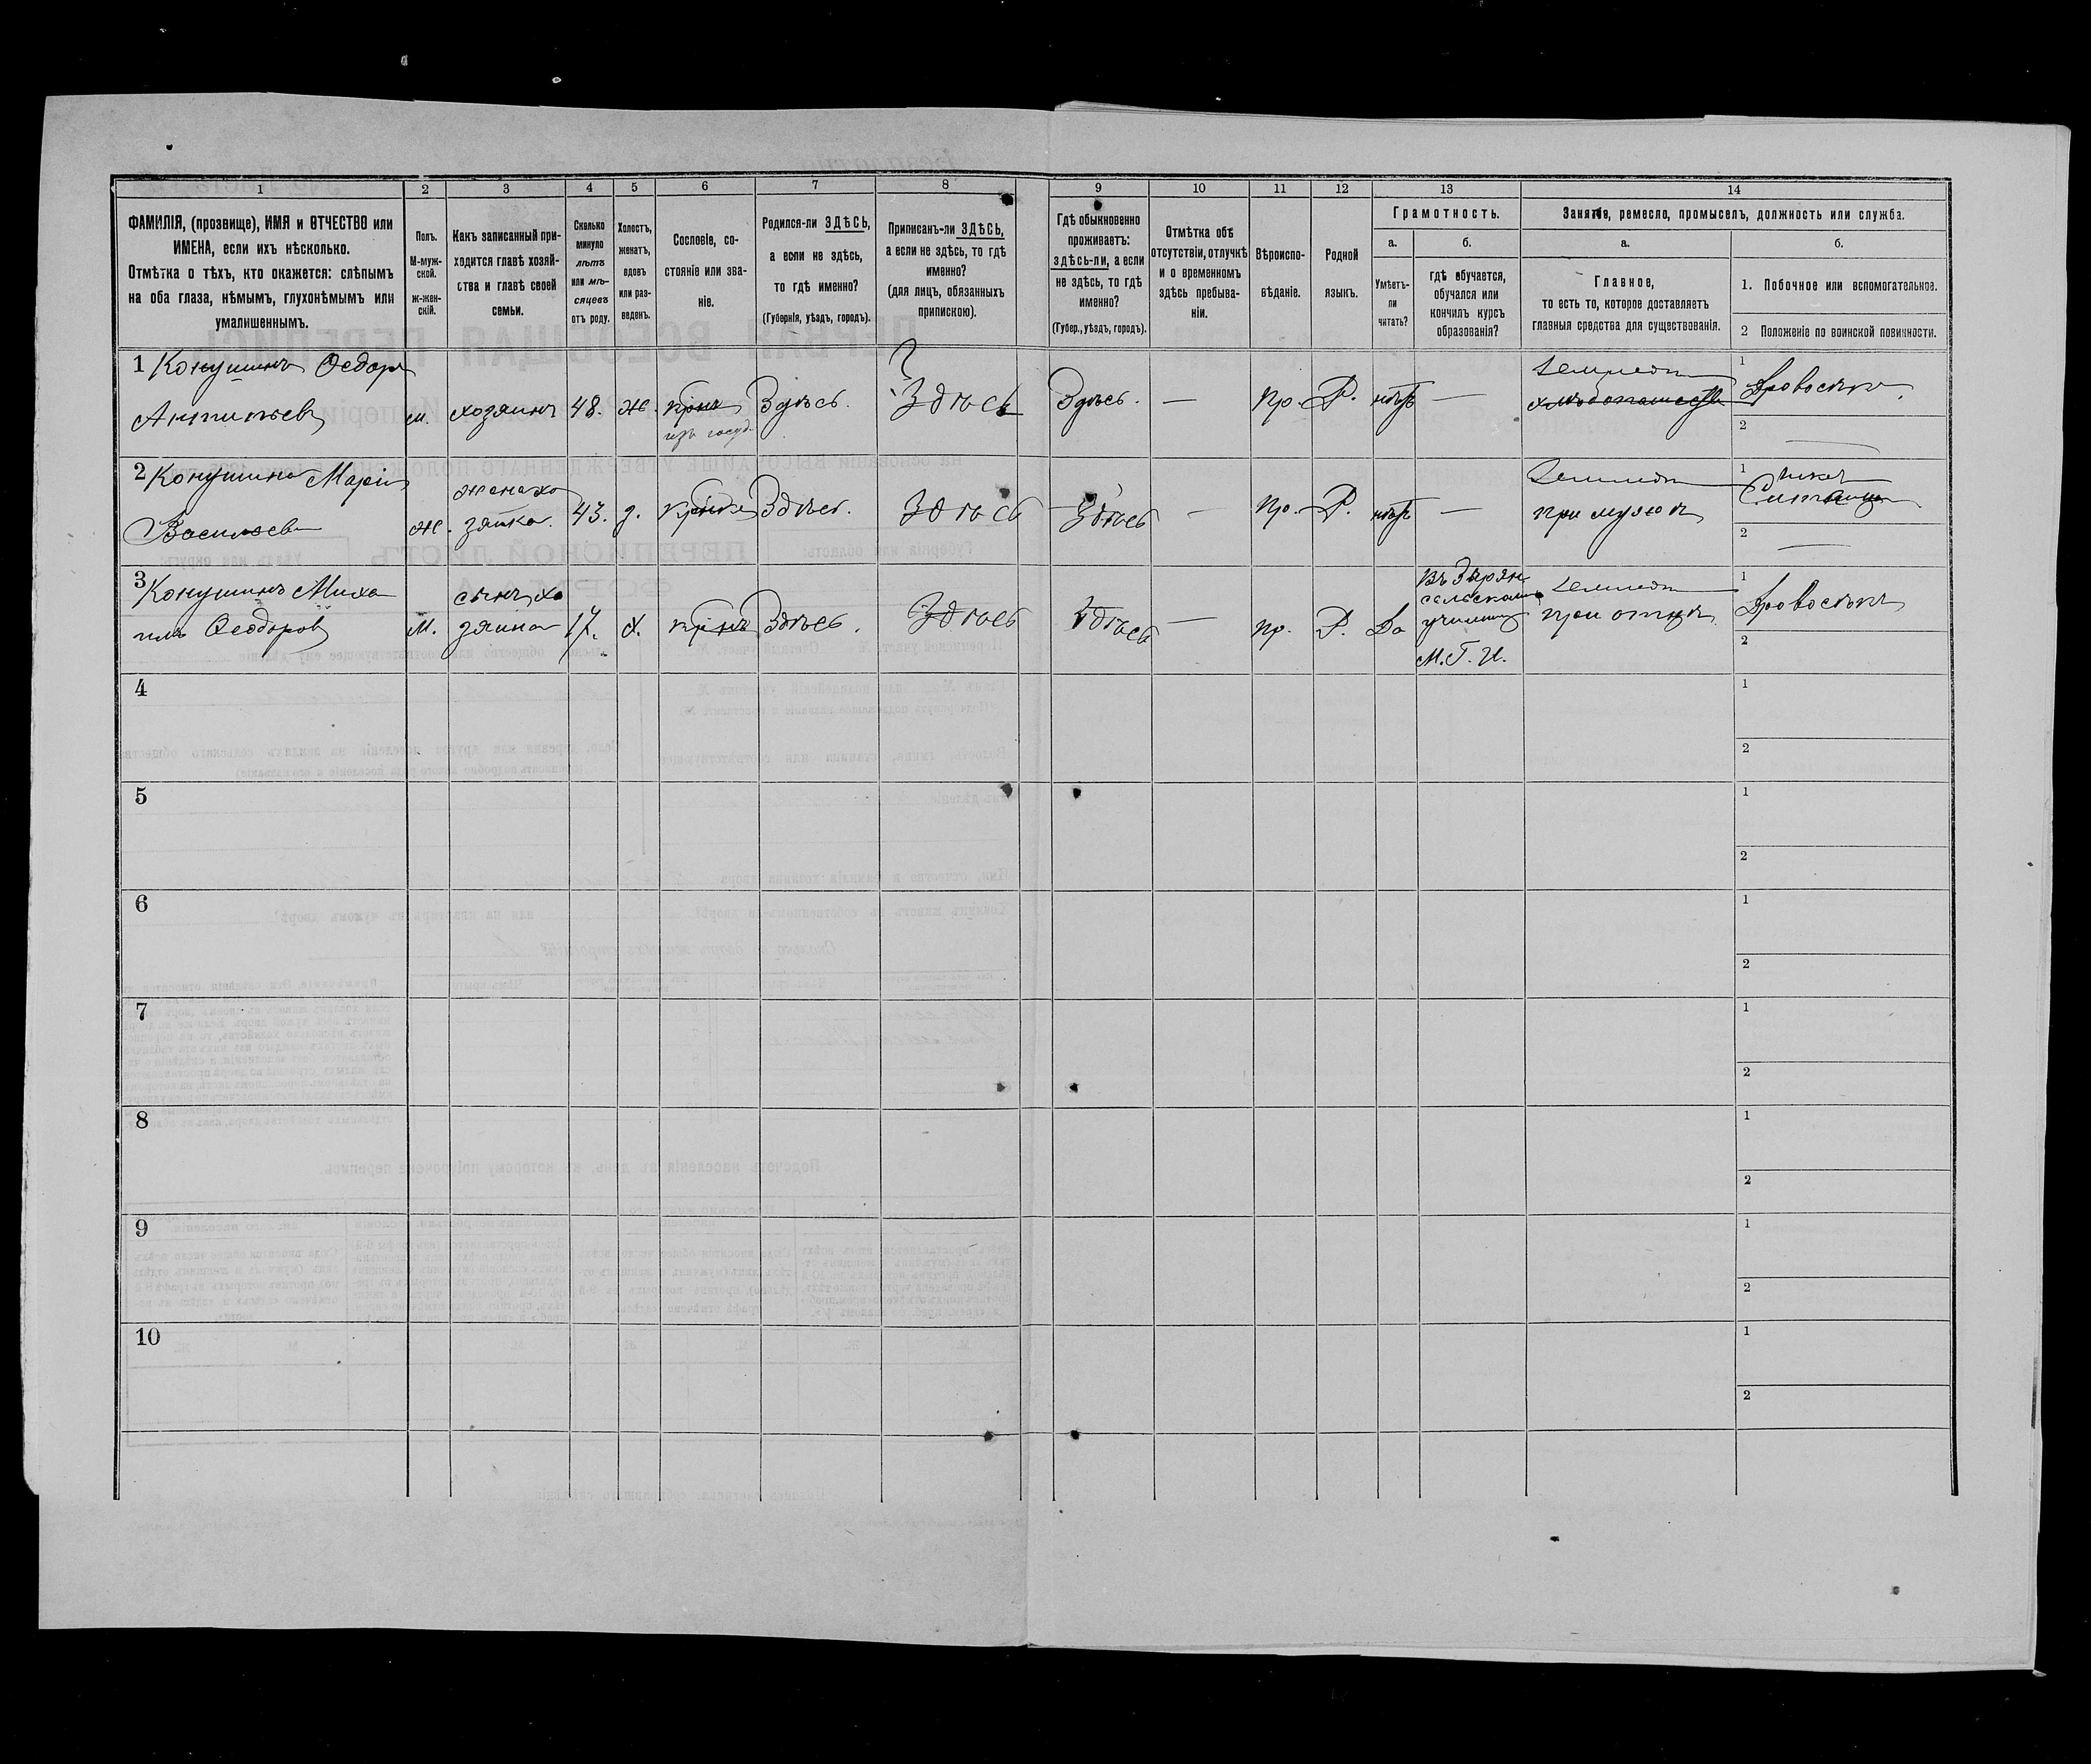 1 2 3 4 5 6 7 8 9 10 11 12 13 14
ФАМИЛІЯ, (прозвище), ИМЯ и ОТЧЕСТВО или
ИМЕНА, если ихъ нѣсколько.
Отмѣтка о тѣхъ, кто окажется: слѣпымъ
на оба глаза, нѣмымъ, глухонѣмымъ или
умалишеннымъ.
Полъ.
М-муж-
ской.
ж-жен-
скій.
Какъ записанный при-
ходится главѣ хозяй-
ства и главѣ своей
семьи.
Сколько
минуло
лѣтъ
или мѣ-
сяцевъ
отъ роду.
Холостъ,
женатъ,
вдовъ
или раз-
веденъ.
Сословіе, со-
стояніе или зва-
ніе.
Родился-ли ЗДѢСЬ,
а если не здѣсь,
то гдѣ именно?
(Губернія, уѣздъ, городъ).
Приписанъ-ли ЗДѢСЬ,
а если не здѣсь, то гдѣ
именно?
(для лицъ, обязанныхъ
припискою).
Гдѣ обыкновенно
проживаетъ:
здѣсь-ли, а если
не здѣсь, то гдѣ
именно?
(Губер., уѣздъ, городъ).
Отмѣтка объ
отсутствіи, отлучкѣ
и о временномъ
здѣсь пребыва-
ніи.
Вѣроиспо-
вѣданіе.
Родной
языкъ.
Грамотность.
а.
Умѣетъ-
ли
читать?
б.
гдѣ обучается,
обучался или
кончилъ курсъ
образованія?
Занятіе, ремесло, промыселъ, должность или служба.
а.
Главное,
то есть то, которое доставляетъ
главныя средства для существованія.
б.
1. Побочное или вспомогательное.
2 Положеніе по воинской повинности.
1 Конушинъ Ѳедоръ
Антипьевъ
м.
хозяинъ
48.
ж.
кр-нъ
изъ госуд.
Здѣсь.
?
Здѣсь
Здѣсь.
—
Пр.
Р.
нѣтъ
—
Землед
хлѣбопашество
1 Дровосѣкъ
2 —
2 Конушина Марія
Васильева
ж.
жена хо
зяйка.
43.
з.
Здѣсь.
Здѣсь
Здѣсь
—
Пр.
Р.
нѣтъ
—
Землед
при мужѣ
1
2 —
3 Конушинъ Миха
илъ Ѳеодоровъ
М.
сынъ хо
зяина
17.
х.
кр-нъ
Здѣсь.
Здѣсь
Здѣсь
—
пр.
Р.
Да
сельскомъ
училищѣ
М. Г. И.
Землед
при отцѣ
1 Дровосѣкъ
2
4
1
2
5
1
2
6
1
2
7
1
2
8
1
2
9
1
2
10
1
2